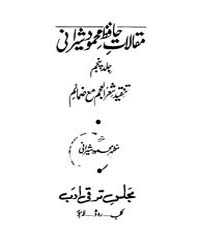 مقالات حافظ محمود شیرانی
جلد پنجم
تنقید شعر العجم مع ضمائم
مظہر محمود شیرانی
مجلس ترقی ادب
کلب روڈ لاہور